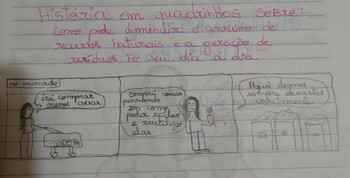 História em quadrinhos sobre:
como pode diminuir o consumo de
recursos naturais e a geração de
resíduos no seu dia a dia.
no mercado
comprar
menos coisas
Comprei coisas
pensando
em como
poder reciclar
e reutilizar
elas
Aqui devemos
sempre descartar
corretamente